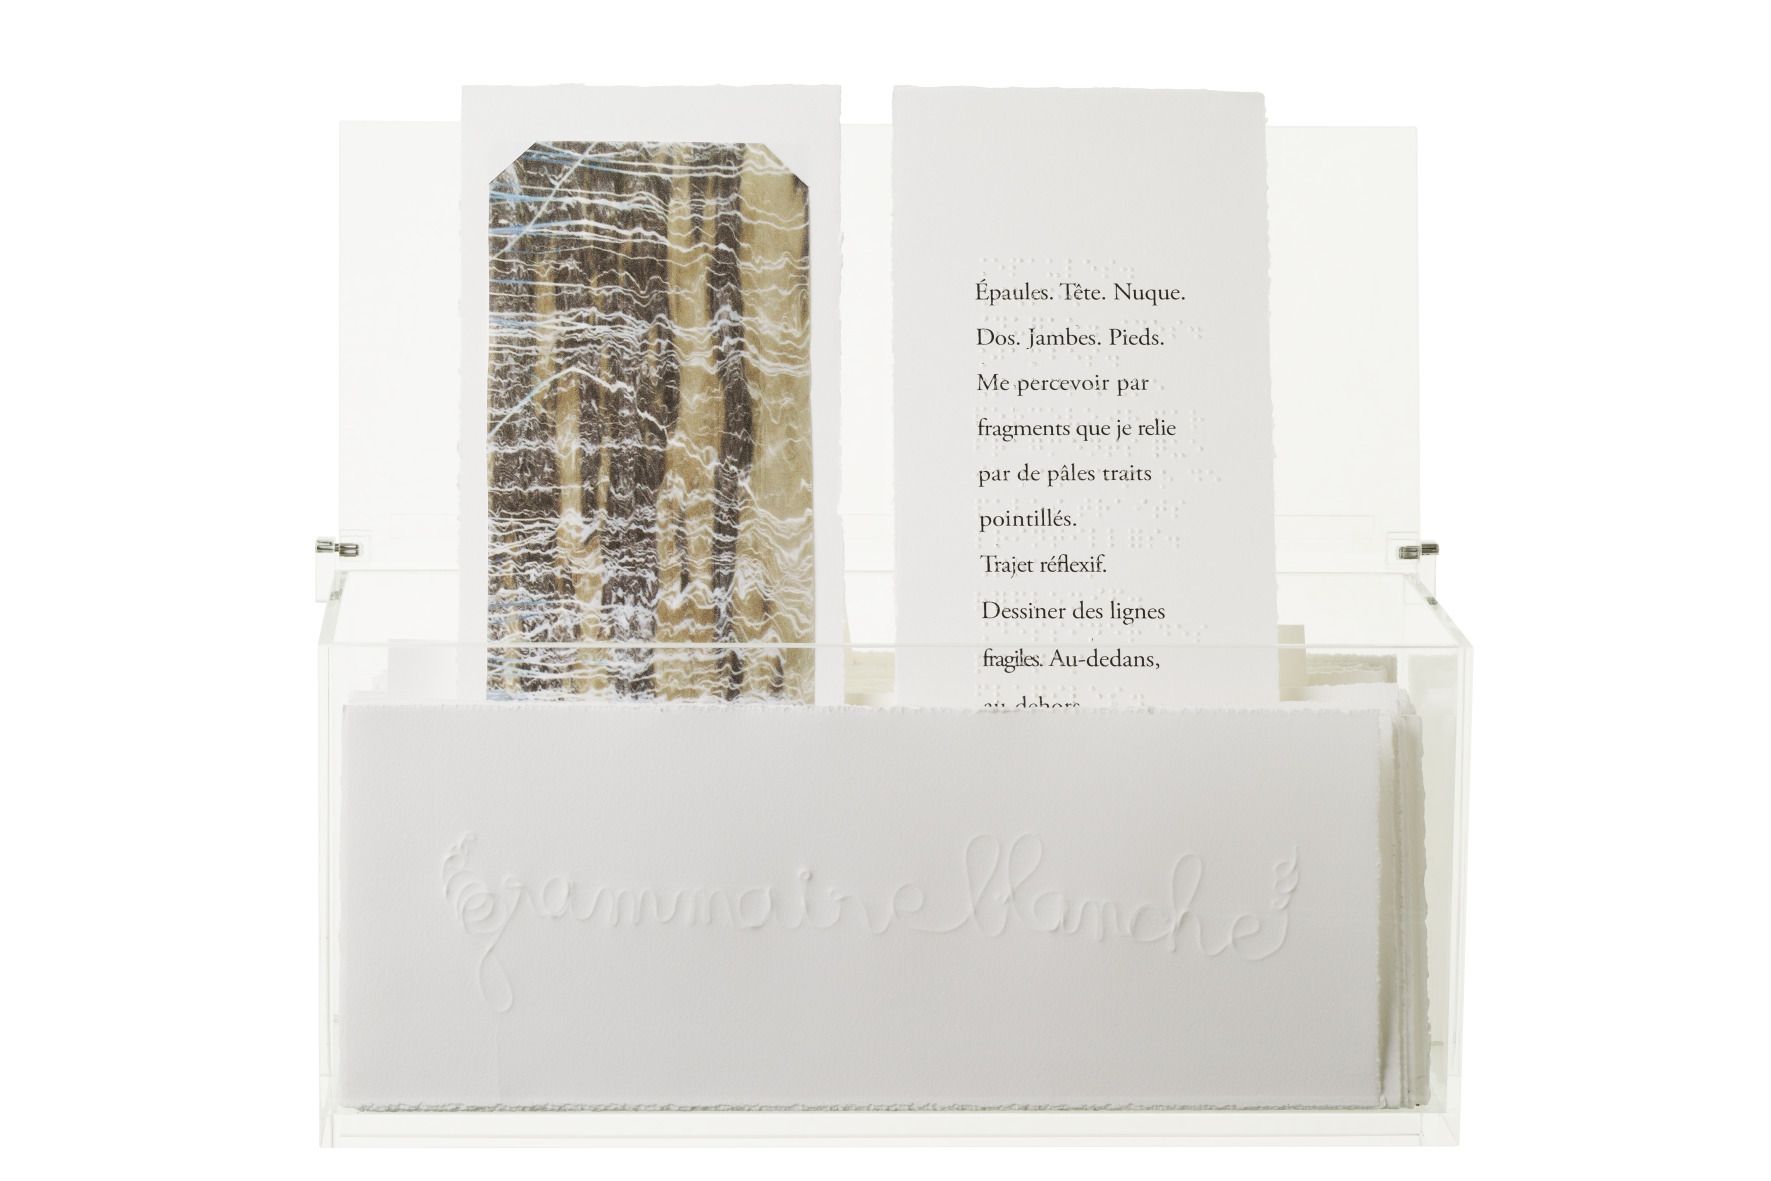 Épaules. Tête. Nuque.
Dos. Jambes. Pieds.
Me percevoir par
fragments que je relie
par de pâles traits
pointillés.
Trajet réflexif.
Dessiner des lignes
fragiles. Au-dedans,
au-dehors
grammaire blanche